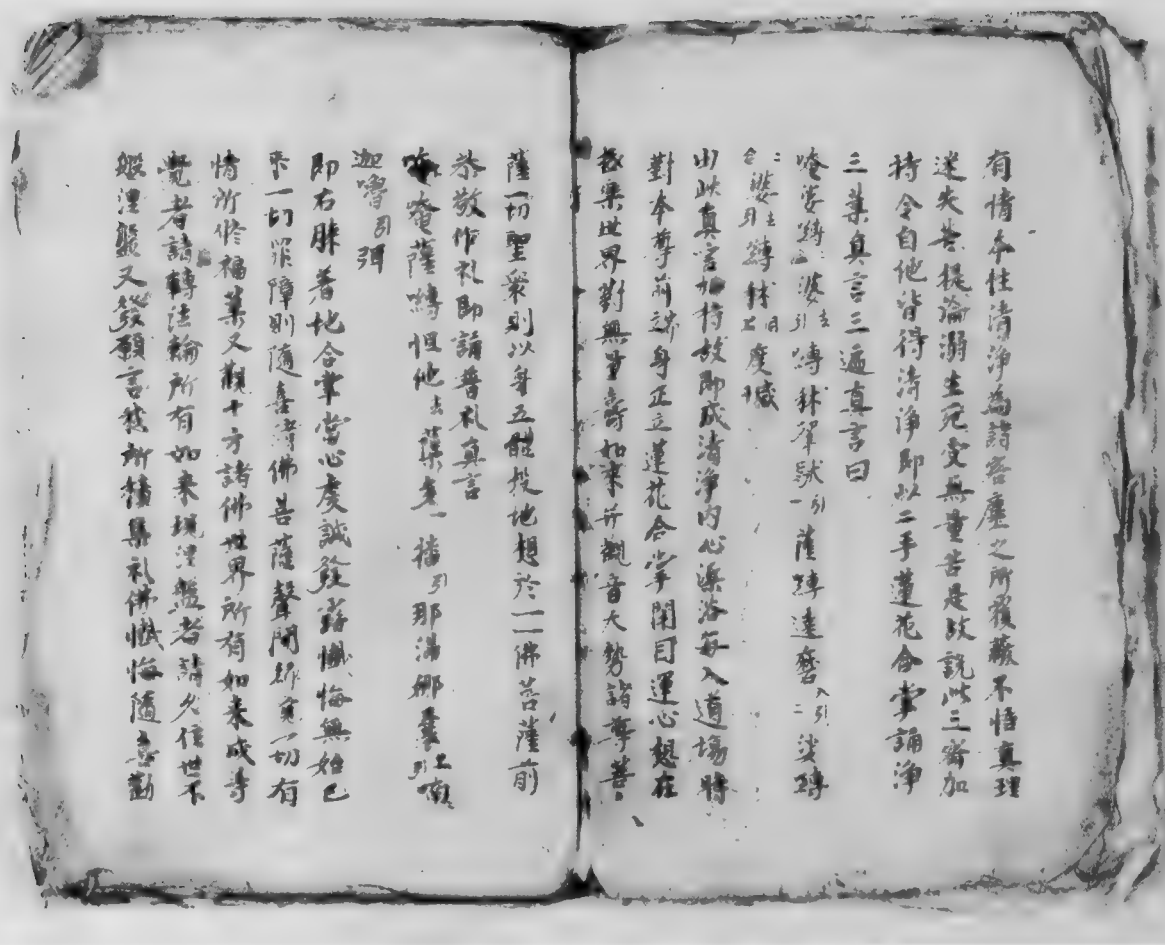 有情本性清淨為諸客塵之所覆蔽不悟真理
迷失菩提淪溺生死受無量苦是故說此三密加
持令自他皆得清淨即以二手蓮花合掌誦淨
三業真言三遍真言曰
唵娑嚩二合婆引去嚩秫馱引一薩嚩達磨入引二娑嚩
二合婆去引嚩秫上同度憾
由此真言加持故即成清淨內心澡浴每入道場時
對本尊前端身正立蓮花合掌閉目運心想在
極樂世界對無量壽如来并觀音大勢諸尊菩
薩一切聖衆則以身五體投地想於一一佛菩薩前
恭敬作礼即誦普礼真言
唵薩嚩怛他去蘖多一播引那滿娜曩上引喃
迦嚕引弭
即右膝着地合掌當心虔誠發露懺悔無始已
来一切罪障則隨喜諸佛菩薩聲聞緣覚一切有
情所修福業又觀十方諸佛世界所有如来成等
覺者請轉法輪所有如来現涅盤者請久住世不
般涅盤又發願言我所積集礼佛懺悔隨喜勸